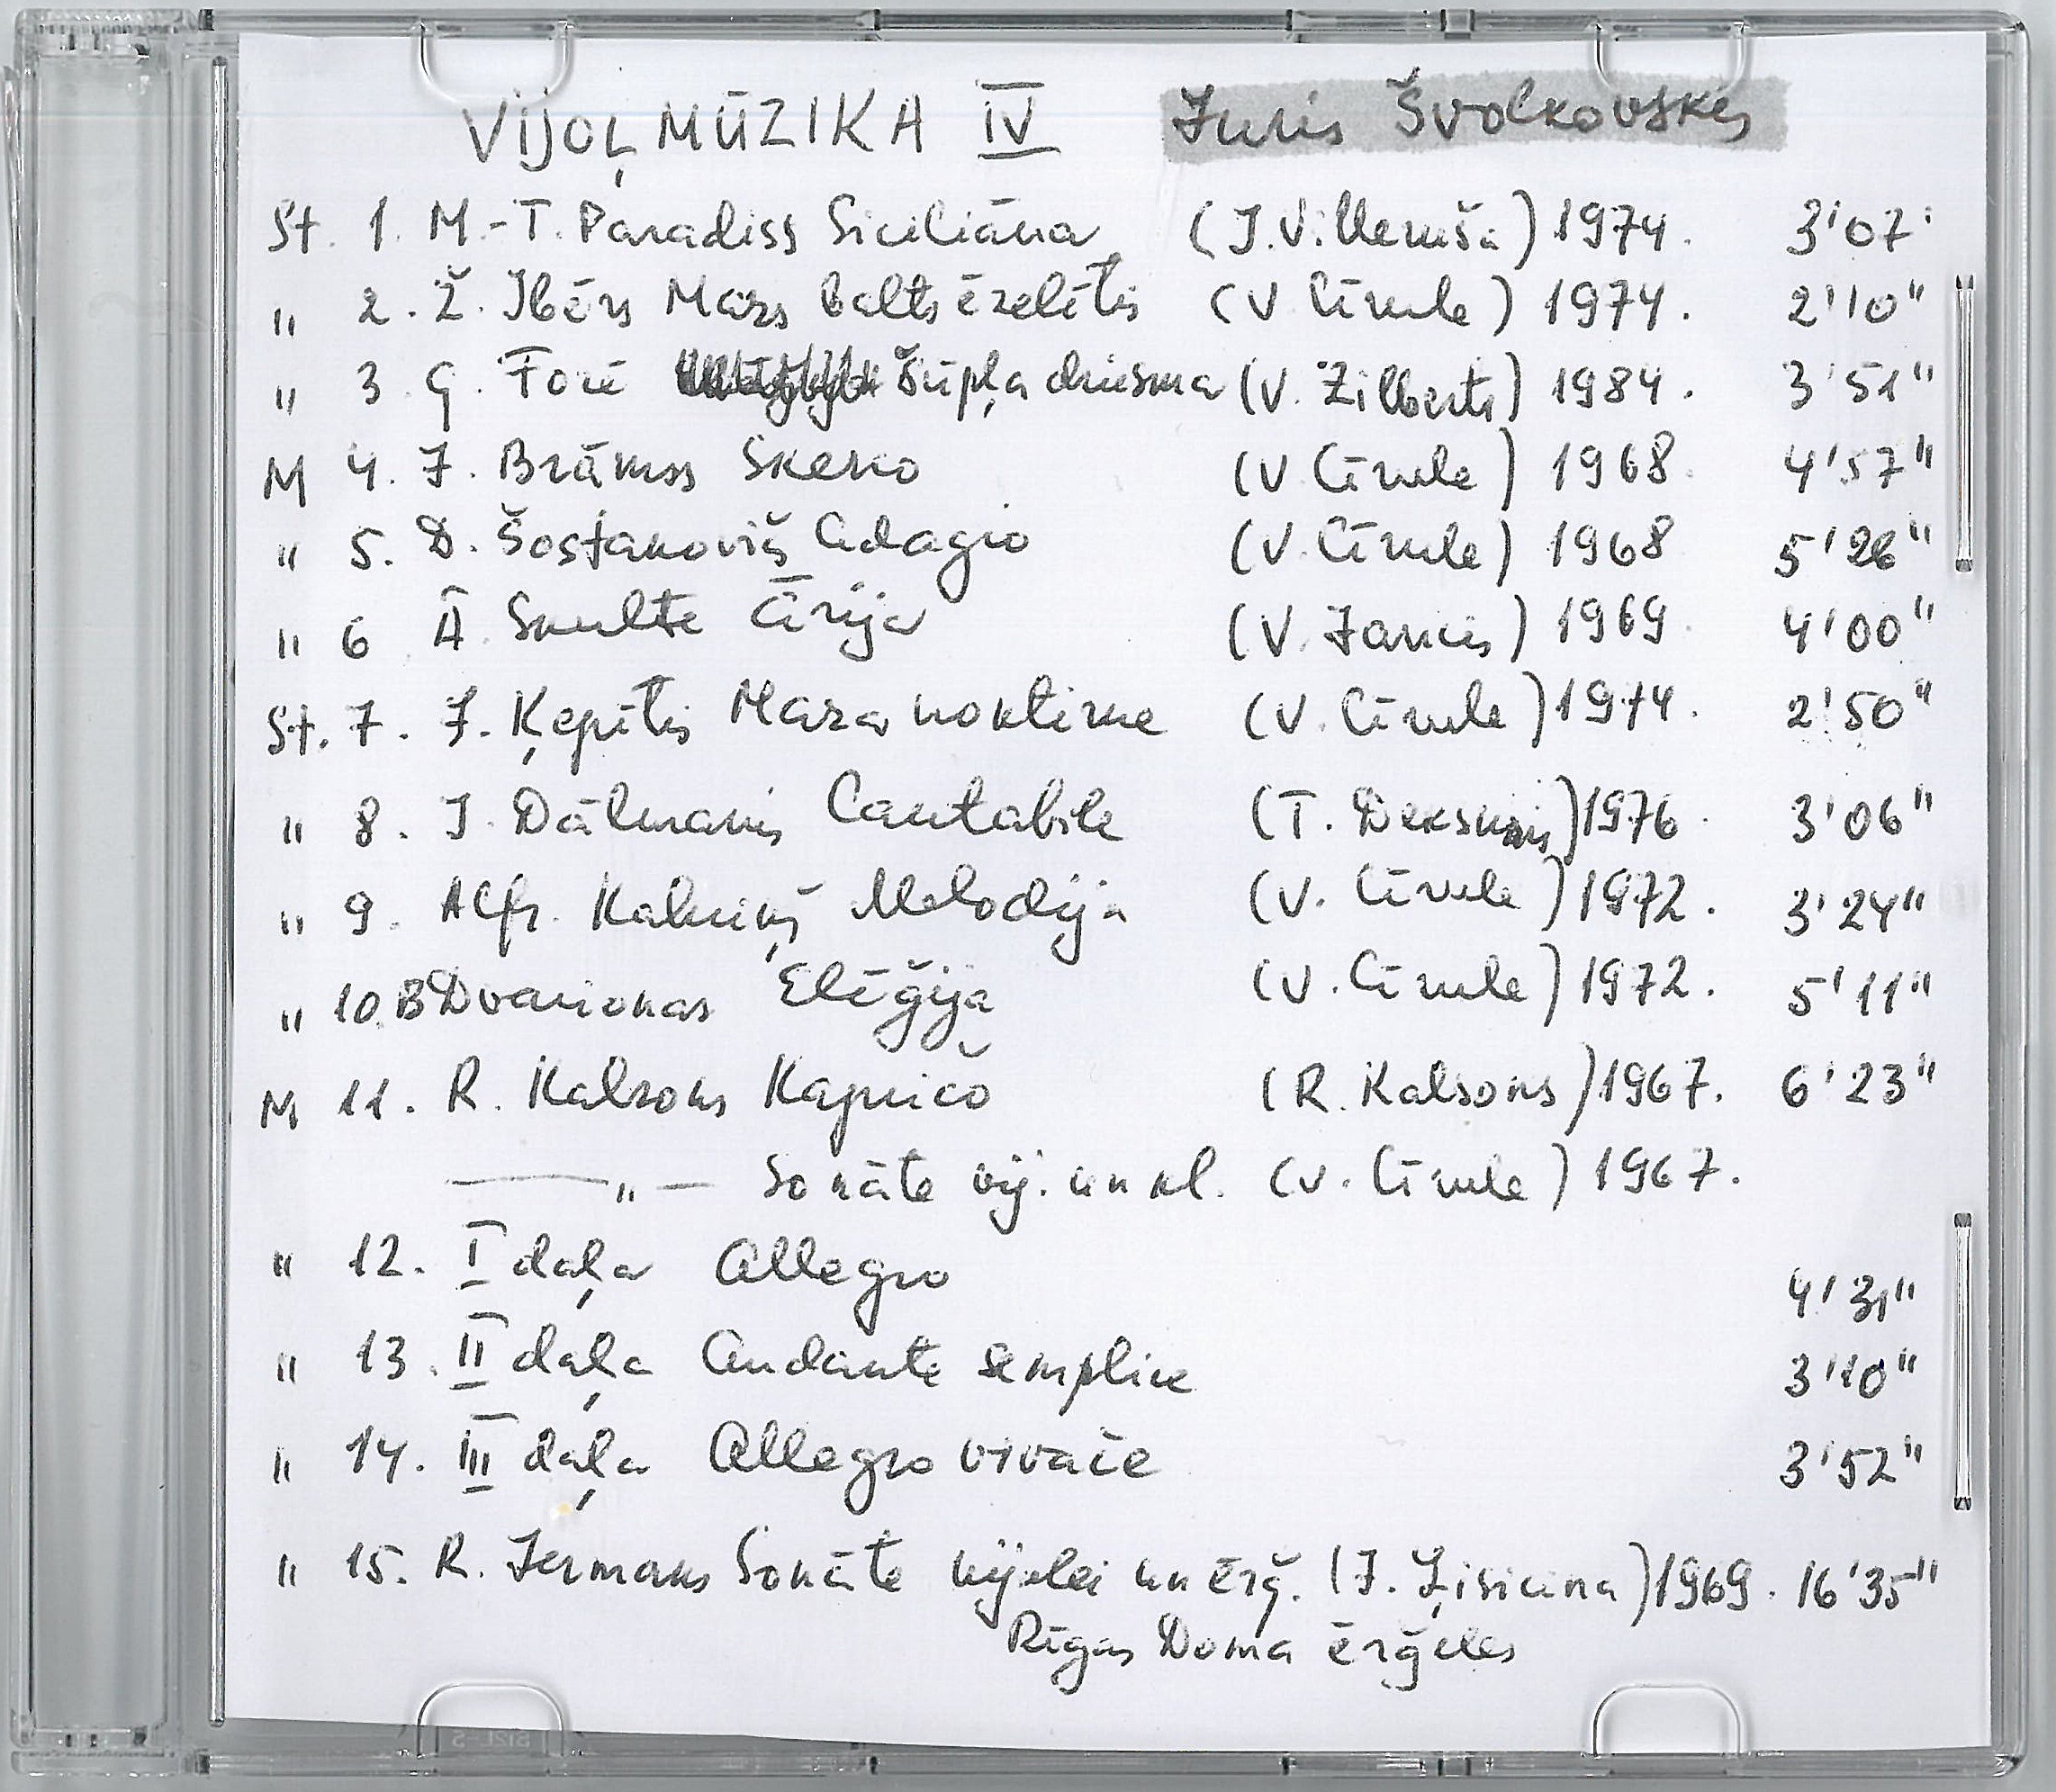 VIJOĻMŪZIKA IV Juris Švolkovskis
St. 1. M.-T. Paradiss Siciliāna (I. Villeruša) 1974. 3'07"
" 2. Ž. Ibērs Mazs balts ēzelītis (V Cīrule) 1974. 2'10"
" 3. G. Forē Šūpļa dziesma (V. Zilberts) 1984. 3'51"
M 4. J. Brāmss Skerco (V Cīrule) 1968. 4'57"
" 5. D. Šostakovičs Adagio (V. Cīrule) 1968 5'26"
" 6 Ā. Skulte Ārija (V. Jancis) 1969. 4'00"
St. 7. J. Ķepītis Maza noktirne (V. Cīrule) 1974. 2'50"
" 8. I. Dālmanis Cantabile (T. Deksnis) 1976. 3'06"
" 9. Alfr. Kalniņš Melodija (V. Cīrule) 1972. 3'24"
" 10. B Dvarionas Elēģija (V. Cīrule) 1972. 5'11"
M 11. R. Kalsons Kapričo (R. Kalsons) 1967. 6'23"
—"— Sonāte vij. un kl. (V. Cīrule) 1967.
" 12. I daļa Allegro 4'31"
" 13. II daļa Andante semplice 3'10"
" 14. III daļa Allegro vivače 3'52"
" 15. R. Jermaks Sonāte vijolei un ērģ. (J. Ļisicina) 1969. 16'35"
Rīgas Doma ērģeles